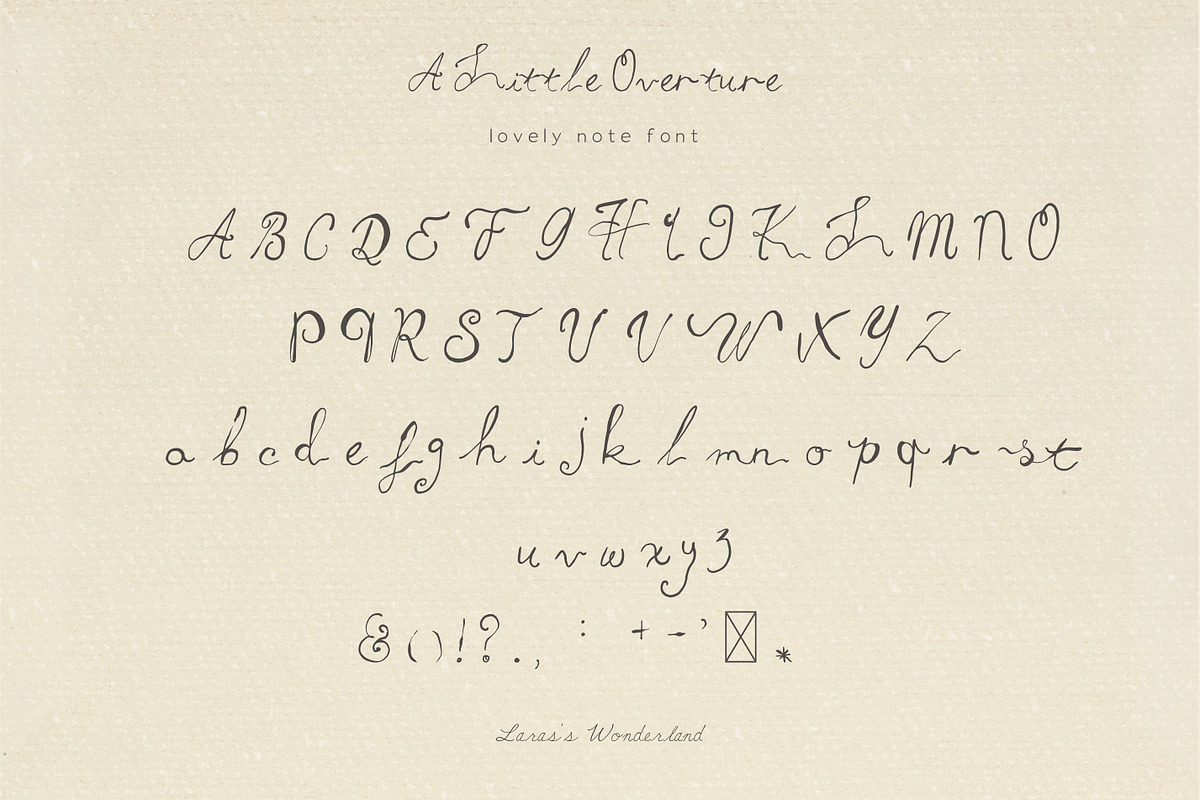 A Little Overture
lovely note font
A B C D E F G H I J K L M N O
P Q R S T U V W X Y Z
a b c d e f g h i j k l m n o p q r s t
u v w x y z
& ( ) ! ? . , : + - ' *
Laras's Wonderland